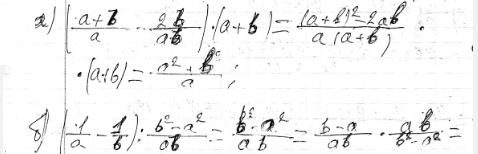 а) (a+b/a - 2b/a+b)·(a+b) = (a+b)²-2ab/a(a+b) ·
·(a+b) = a²+b²/a ;
б) (1/a - 1/b) : b²-a²/ab = b²-a²/ab = b-a/ab · ab/b²-a² =